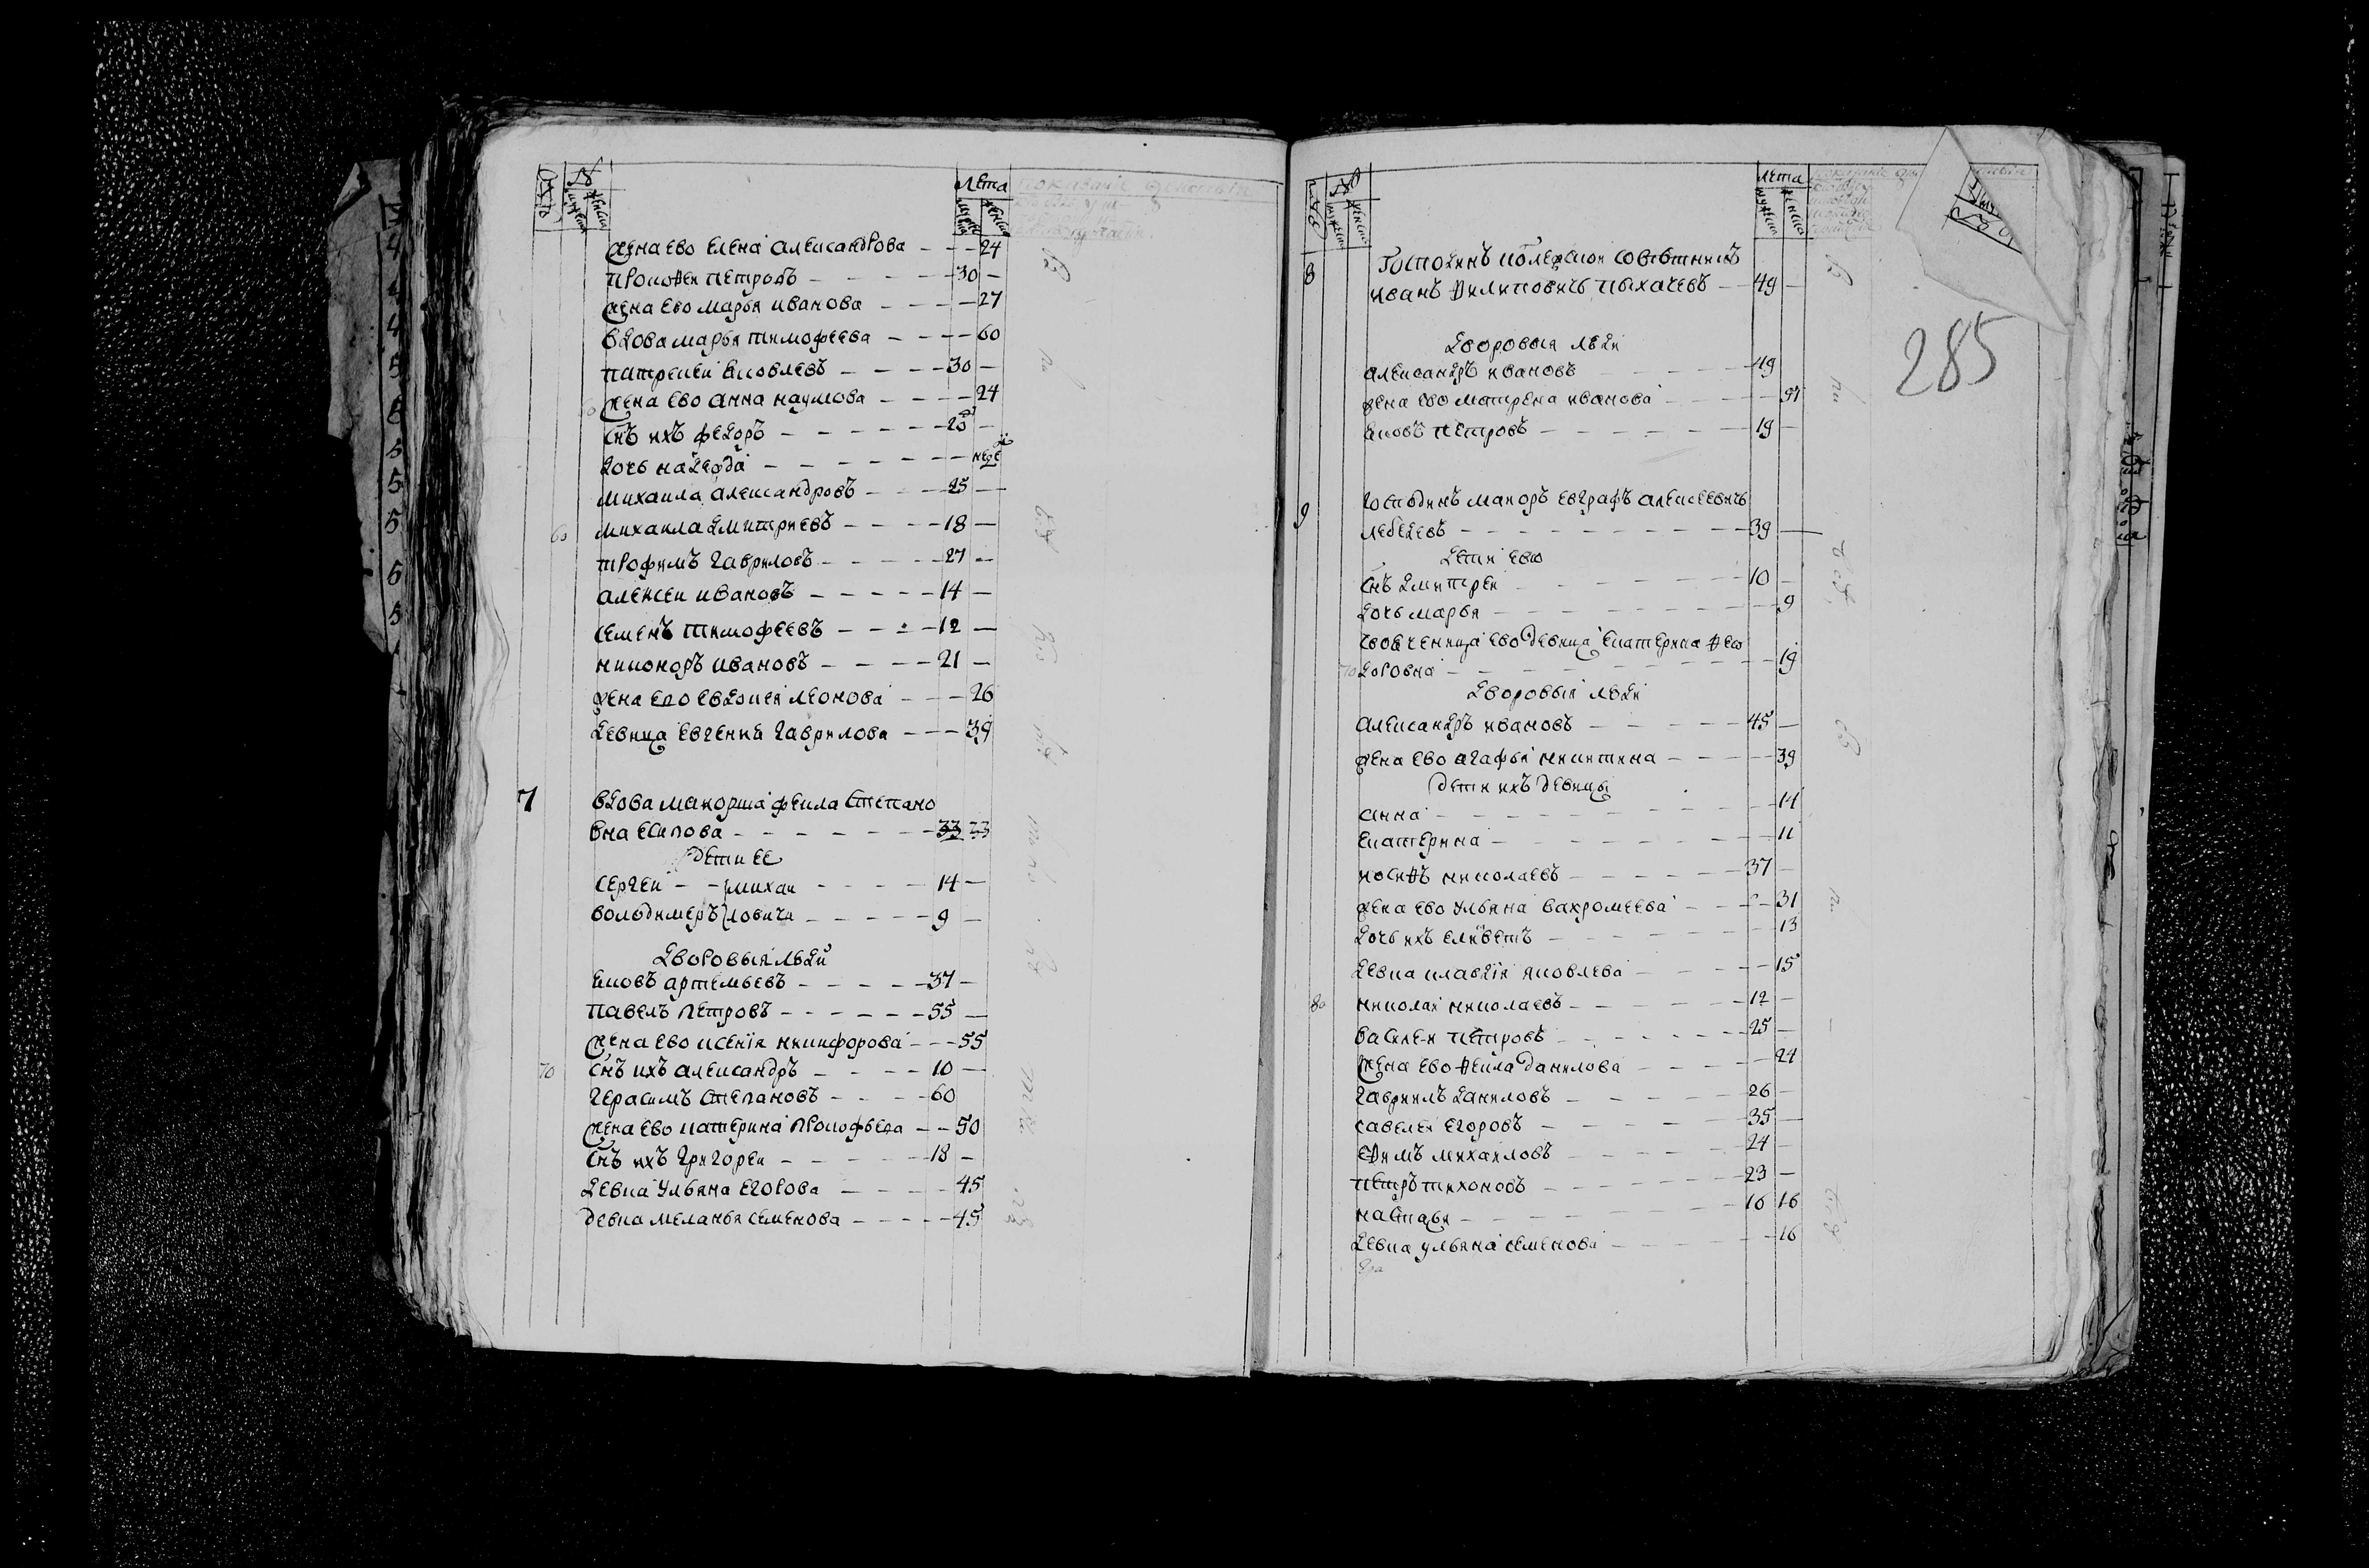 лета
жена ево елена александрова - - - 24
прокофеи петровъ - - - - - 30 -
жена ево марья иванова - - - - 27
вдова марья тимофеева - - - - 60
патрекеи яковлевъ - - - - 30 -
жена ево анна наумова - - - - 24
снъ ихъ федоръ - - - - - -
дочь надежда - - - - - -
михаила александровъ - - - 25 -
60 михаила дмитриевъ - - - - 18 -
трофимъ гавриловъ - - - - - 27 -
алексеи ивановъ - - - - - 14 -
семенъ тимофеевъ - - - - 12 -
никоноръ ивановъ - - - - 21 -
жена ево евдокея леонова - - - 26
девица евгения гаврилова - - - 39
7 вдова маиорша фекла степано
вна есипова - - - - - - - 33 33
дети ее
сергеи - - михаи - - - - 14 -
володимеръ ловичи - - - - - 9 -
дворовыя люди
яковъ артемьевъ - - - - - 37 -
павелъ петровъ - - - - - - 55 -
жена ево ксения никифорова - - - 55
70 снъ ихъ александръ - - - - 10 -
герасимъ степановъ - - - - 60
жена ево катерина прокофьева - - 50
снъ ихъ григореи - - - - - 18 -
девка ульяна егорова - - - - 45
девка меланья семенова - - - - - 45
лета
285
8 господинъ колежскои советникъ
иванъ филиповичь пыхачевъ - - 49 -
дворовыя люди
александръ ивановъ - - - - - 49
жена ево матрена иванова - - - - -
яковъ петровъ - - - - - - 19 -
9 господинъ маиоръ евграфъ алексеевичь
лебедевъ - - - - - - - - - 39 -
дети ево
снъ дмитреи - - - - - - 10 -
дочь марья - - - - - - - - 9
своеченица ево девица екатерина фео
70 доровна - - - - - - - - 19
дворовыя люди
александръ ивановъ - - - - - - 45 -
жена ево агафья никитина - - - - - 39
дети ихъ девицы
анна - - - - - - - - - 14
екатерина - - - - - - - - 11
иосифъ николаевъ - - - - - - 37 -
жена ево ульяна вахромеева - - - - 31
дочь ихъ - - - - - - 13
девка клавдия яковлева - - - - - 15
80 николаи николаевъ - - - - - - 12 -
василеи петровъ - - - - - - 25 -
жена ево фекла данилова - - - - - 24
гаврилъ даниловъ - - - - - 26 -
савелеи егоровъ - - - - - 35 -
ефимъ михаиловъ - - - - - 24 -
петръ тихоновъ - - - - - - 23 -
настасья - - - - - - - - 16 16
девка ульяна семенова - - - - - 16